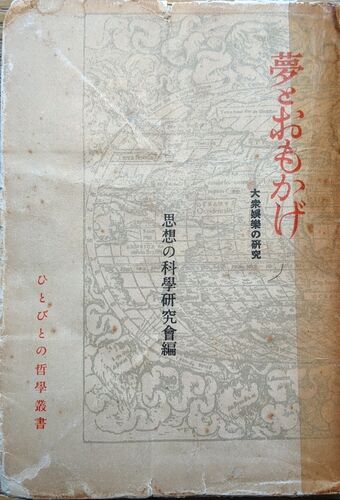 夢とおもかげ
大衆娯樂の研究
思想の科學研究會編
ひとびとの哲學叢書